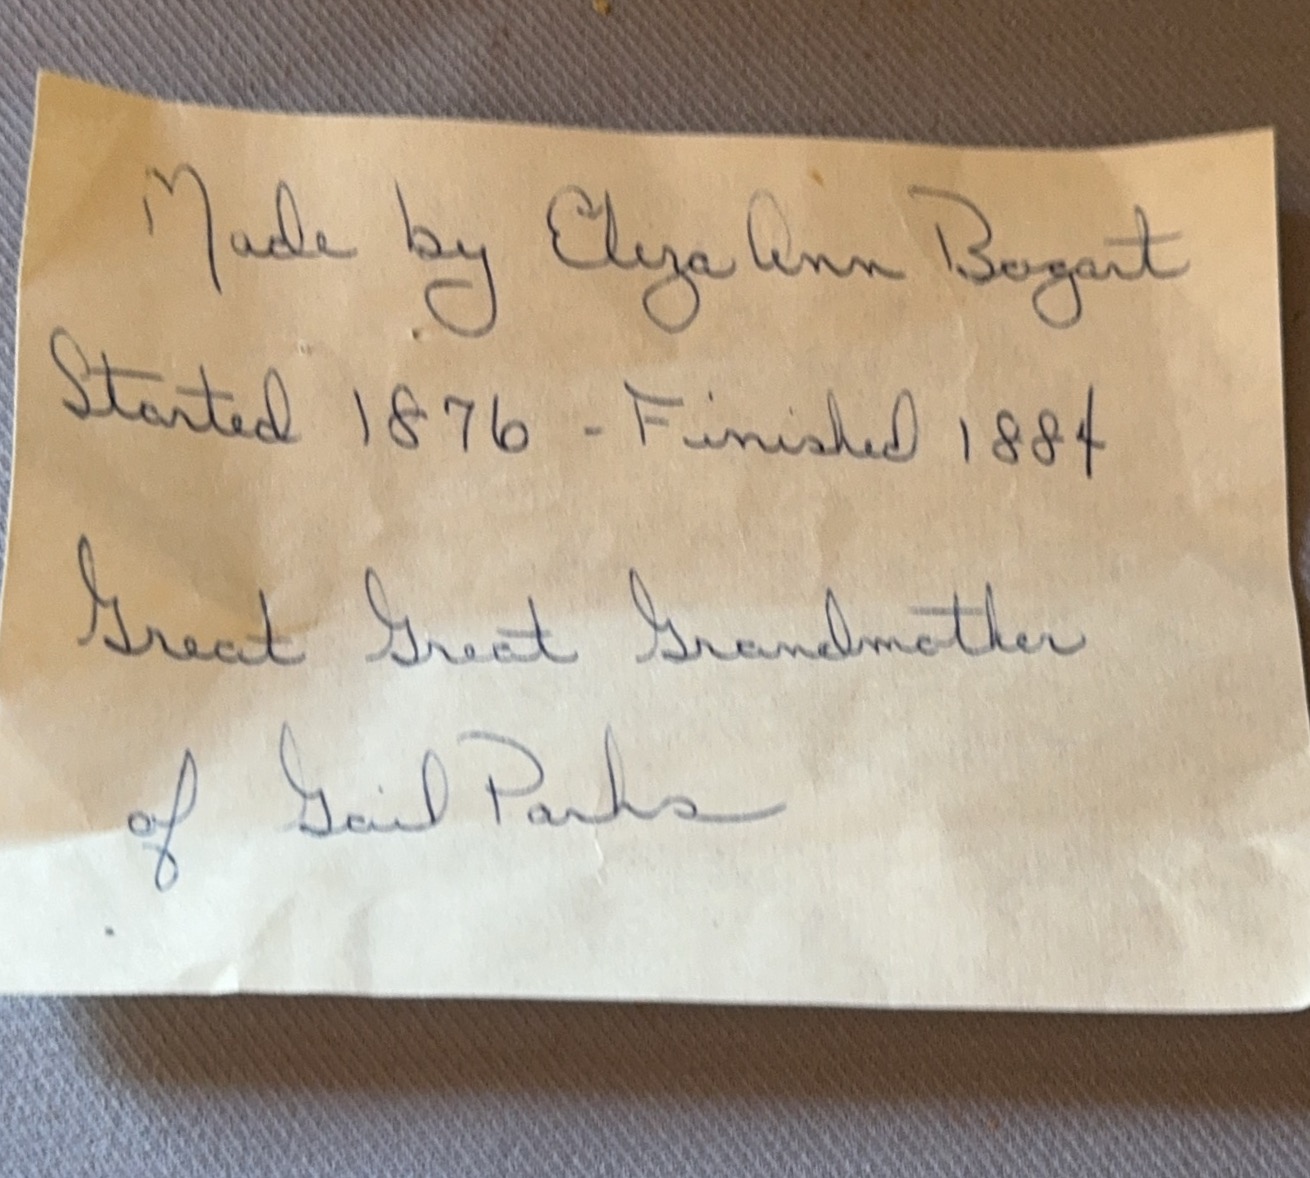 Made by Eliza Ann Bogart
Started 1876 - Finished 1884
Great Great Grandmother
of Gail Parks